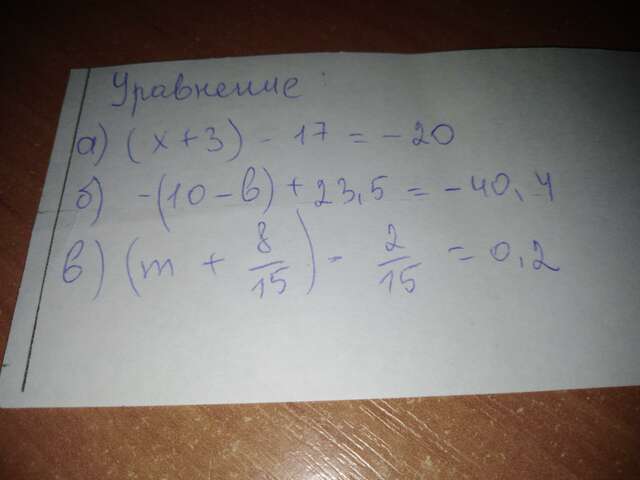 Уравнение:
а) (x + 3) - 17 = -20
б) -(10 - в) + 23,5 = -40,4
в) (m + 8/15) - 2/15 = 0,2